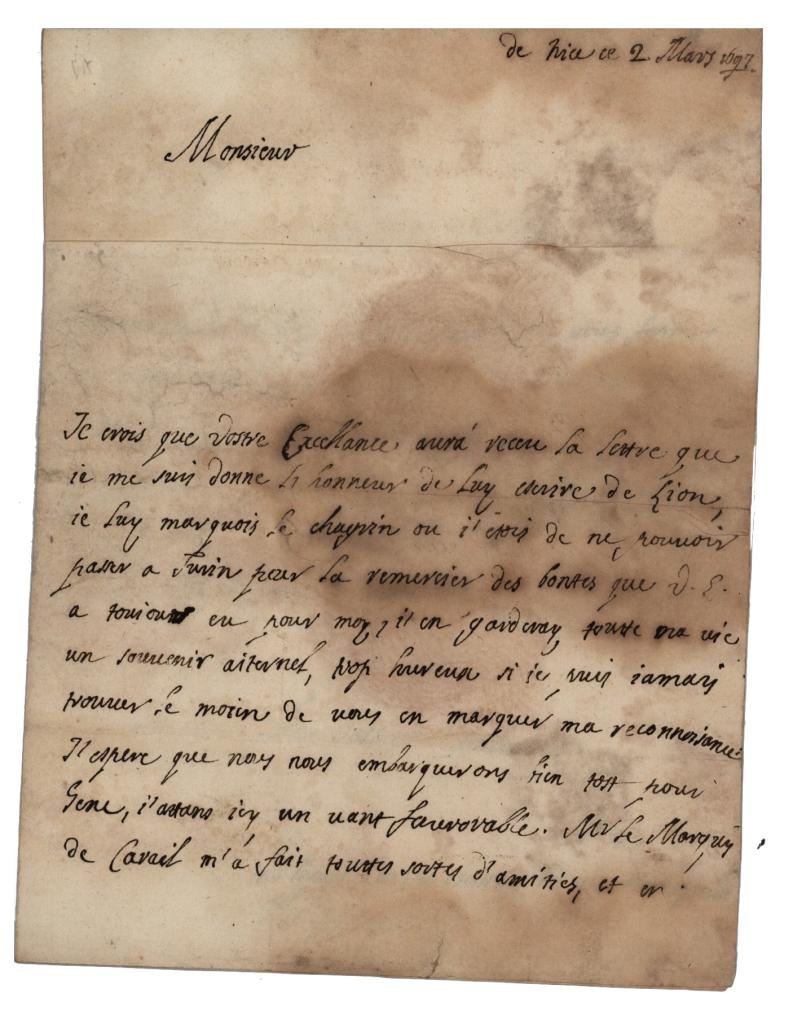 de Nice ce 2 Mars 1697.
Monsieur
Je crois que Vostre Excellance aurá receu la lettre que
ie me suis donne l'honneur de Luy escrire de Lion,
ie Luy marquois le chagrin ou i'étois de ne pouvoir
passer a Turin pour la remercier des bontes que V. E.
a toujours eu pour moy, i'en garderay toutte ma vie
un souvenir aiternel, trop hureux si ie puis iamais
trouver le moien de vous en marquer ma reconnoisance
J'espere que nous nous embarquerons bien tost pour
Gene, i'attans icy un vant favorable. Mr le Marquis
de Carail m'á fait touttes sortes d'amities, et en